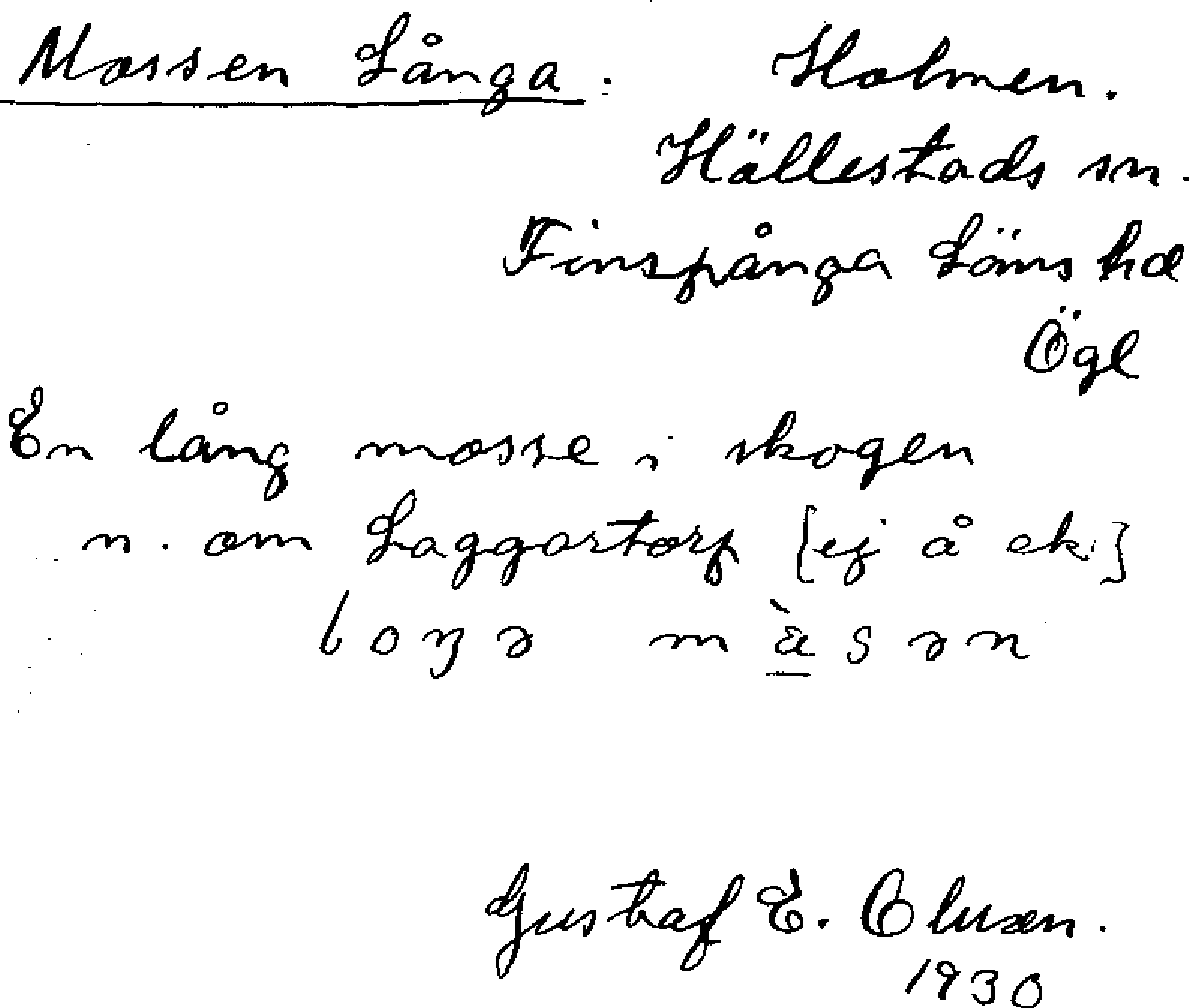 Mossen Långa. Holmen.
Hällestads sn.
Finspånga Läns hd
Ögl
En lång mosse i skogen
n. om Laggartorp [ej å ek]
loŋə m̀asən
Gustaf E.
1930